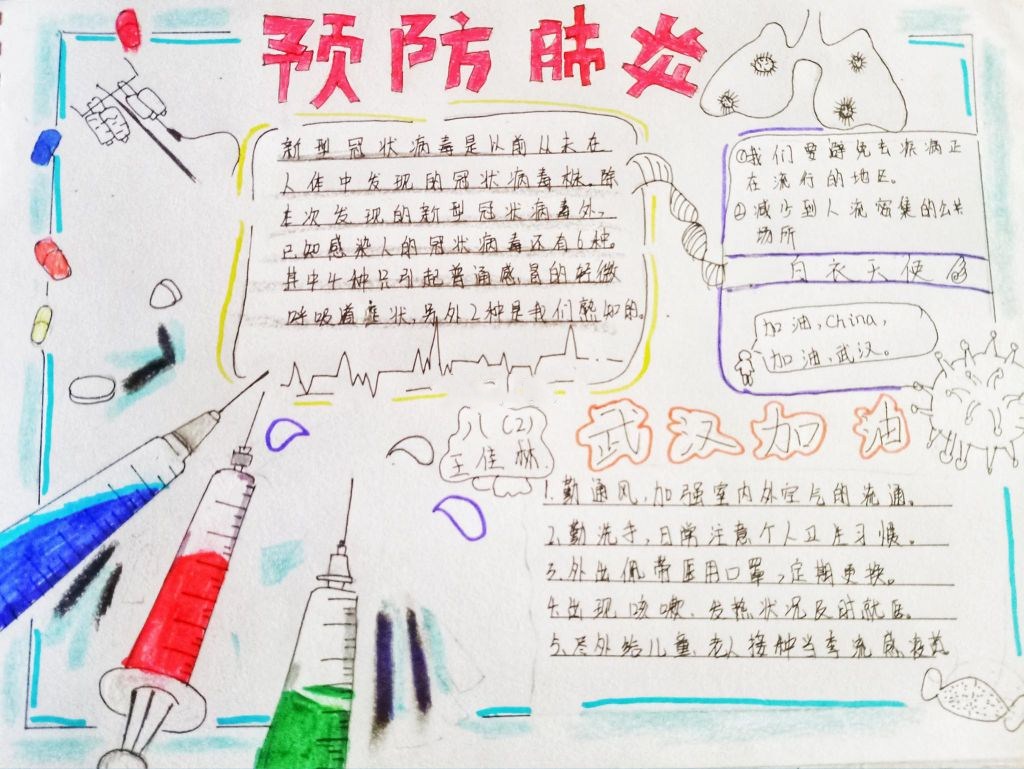 预防肺炎
新型冠状病毒是以前从未在
人体中发现的冠状病毒株,除
本次发现的新型冠状病毒外,
已知感染人的冠状病毒还有6种。
其中4种只引起普通感冒的轻微
呼吸道症状,另外2种是我们熟知的。
①我们要避免去疾病正
在流行的地区。
②减少到人流密集的公共
场所
白衣天使
加油,China,
加油,武汉。
八(2)
王佳林
武汉加油
1.勤通风,加强室内外空气的流通。
2.勤洗手,日常注意个人卫生习惯。
3.外出佩带医用口罩,定期更换。
4.出现咳嗽、发热状况及时就医。
5、另外给儿童、老人接种当季流感疫苗